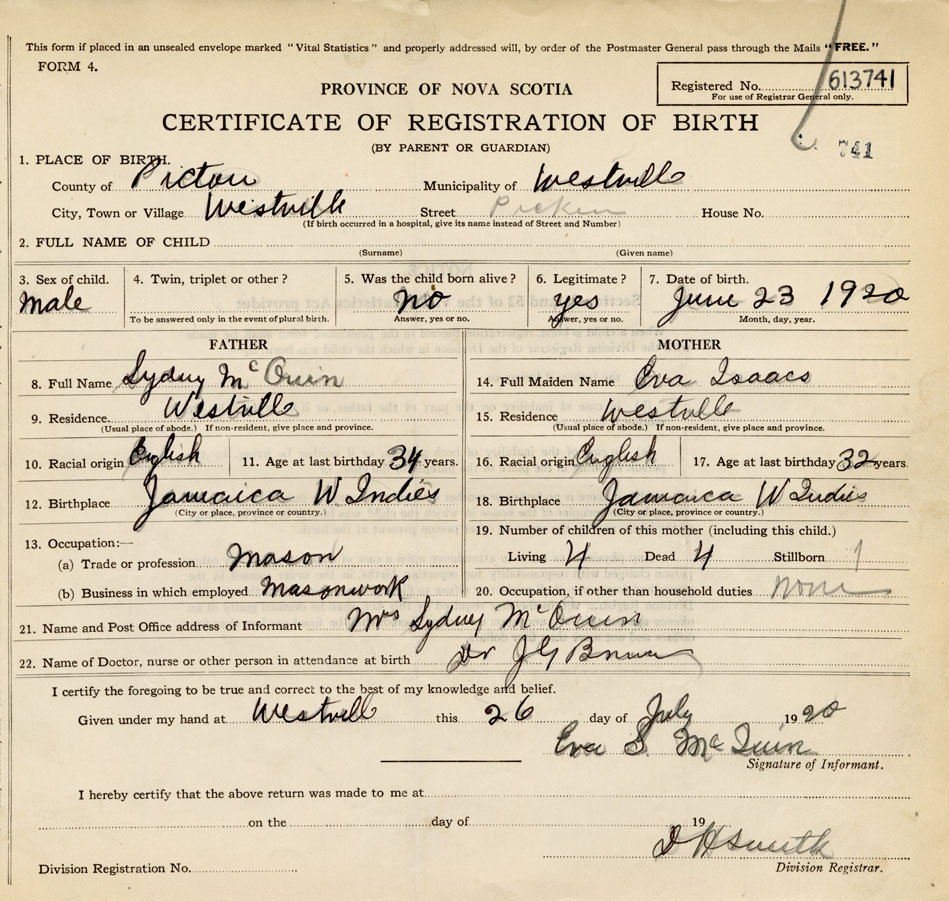 This form if placed in an unsealed envelope marked "Vital Statistics" and properly addressed will, by order of the Postmaster General pass through the Mails "FREE."
FORM 4.
Registered No. 613741
For use of Registrar General only.
PROVINCE OF NOVA SCOTIA
CERTIFICATE OF REGISTRATION OF BIRTH
(BY PARENT OR GUARDIAN)
741
1. PLACE OF BIRTH.
County of Pictou Municipality of Westville
City, Town or Village Westville Street House No.
(If birth occurred in a hospital, give its name instead of Street and Number)
2. FULL NAME OF CHILD
(Surname) (Given name)
3. Sex of child. 4. Twin, triplet or other? 5. Was the child born alive? 6. Legitimate? 7. Date of birth.
Male no yes June 23 1920
To be answered only in the event of plural birth. Answer, yes or no. Answer, yes or no. Month, day, year.
FATHER MOTHER
8. Full Name Sydney Mc 14. Full Maiden Name Eva Isaacs
9. Residence. Westville 15. Residence Westville
(Usual place of abode.) If non-resident, give place and province. (Usual place of abode.) If non-resident, give place and province.
10. Racial origin English 11. Age at last birthday 34 years. 16. Racial origin English 17. Age at last birthday 32 years.
12. Birthplace Jamaica W Indies 18. Birthplace Jamaica W Indies
(City or place, province or country.) (City or place, province or country.)
13. Occupation:— 19. Number of children of this mother (including this child.)
(a) Trade or profession Mason Living 4 Dead 4 Stillborn 1
(b) Business in which employed Masonwork 20. Occupation, if other than household duties None
21. Name and Post Office address of Informant Mrs Sydney Mc
22. Name of Doctor, nurse or other person in attendance at birth Dr J G
I certify the foregoing to be true and correct to the best of my knowledge and belief.
Given under my hand at Westville this 26 day of July 1920
Eva S. Mc
Signature of Informant.
I hereby certify that the above return was made to me at
on the day of 19
D H Smith
Division Registration No. Division Registrar.